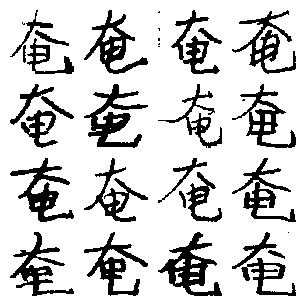 奄奄奄奄
奄奄奄奄
奄奄奄奄
奄奄奄奄